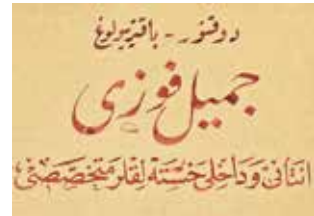 دوقتور - باقتریولوغ
جمیل فوزی
انتانی وداخلی خسته‌لقلر متخصصی